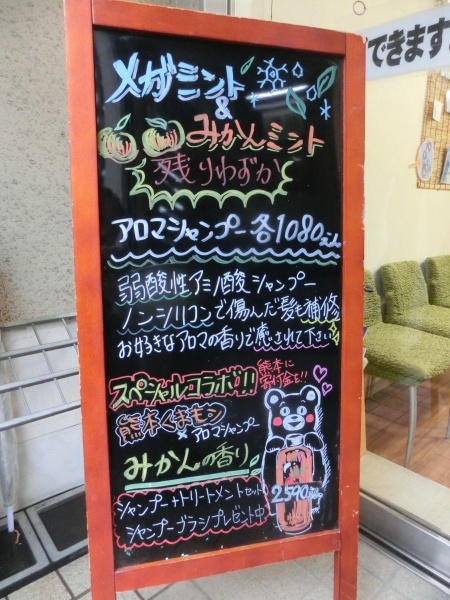 メガミント
&
みかんミント
残りわずか
アロマシャンプー各1080えん
弱酸性アミノ酸シャンプー
ノンシリコンで傷んだ髪を補修
お好きなアロマの香りで癒されて下さい
スペシャルコラボ!!
熊本に
寄付金を!!
熊本くまモン
×アロマシャンプー
みかんの香り
シャンプー+トリートメントセット
2590えん
シャンプーブラシプレゼント中
できます